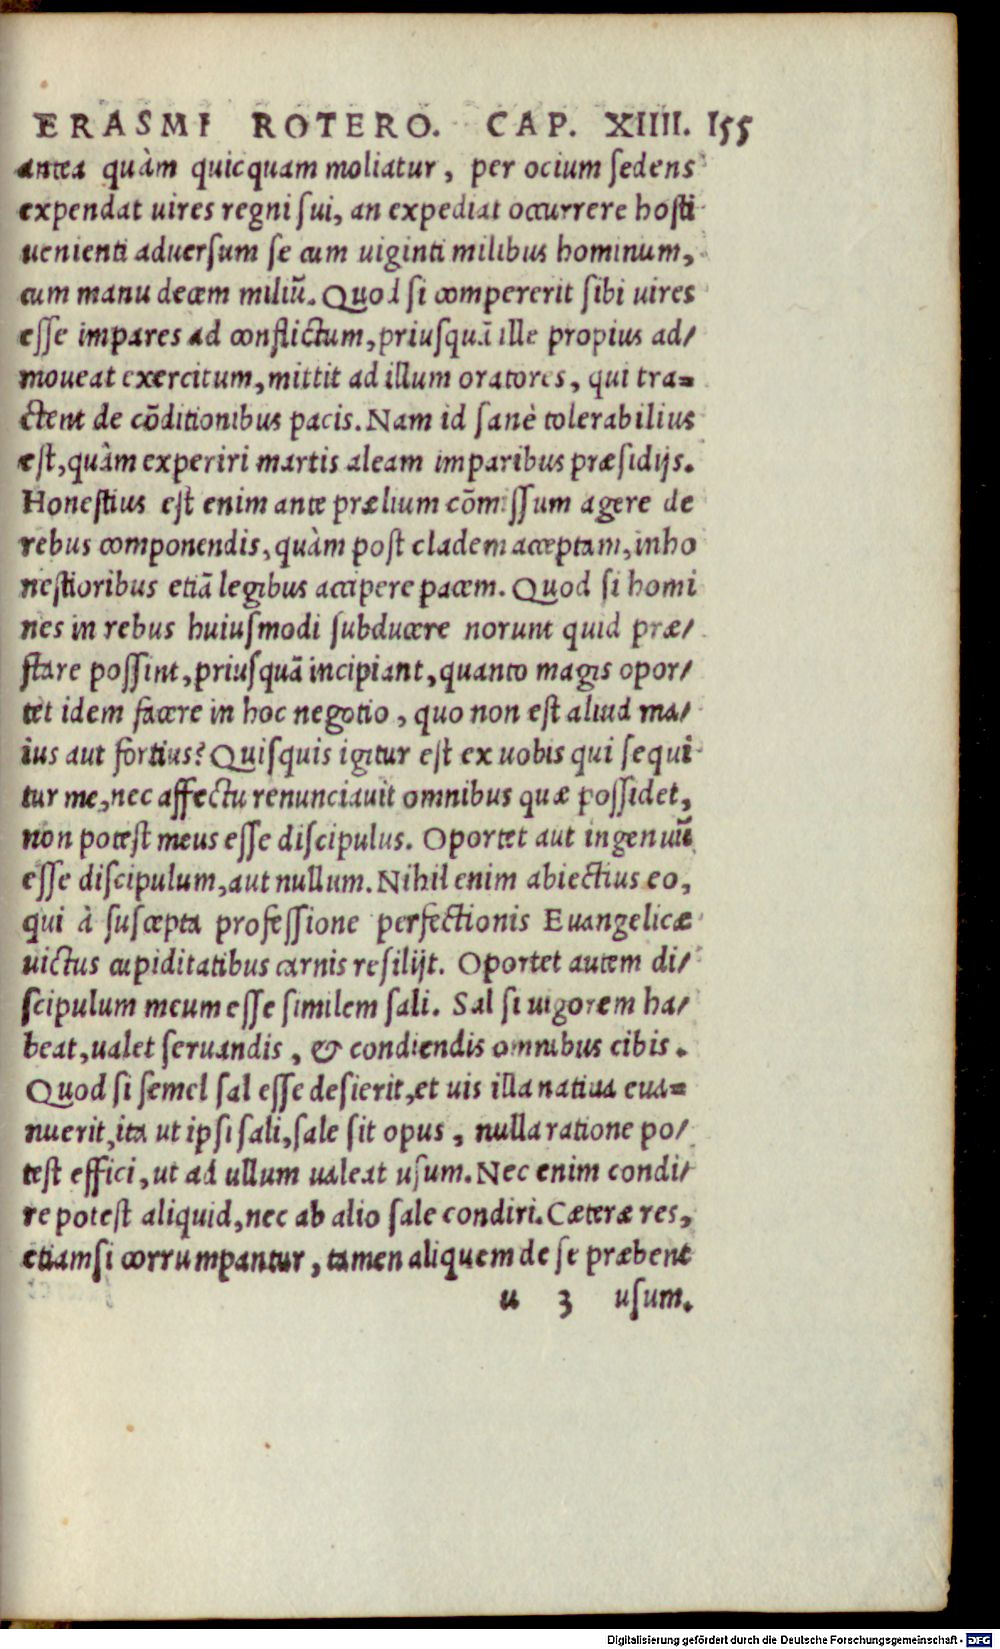 ERASMI ROTERO. CAP. XIIII. 155
antea quàm quicquam moliatur, per ocium ſedens
expendat uires regni ſui, an expediat occurrere hoſti
uenienti aduerſum ſe cum uiginti milibus hominum,
cum manu decem miliũ. Quod ſi compererit ſibi uires
eſſe impares ad conflictum, priuſquã ille propius ad/
moueat exercitum, mittit ad illum oratores, qui tra=
ctent de cõditionibus pacis. Nam id ſanè tolerabilius
eſt, quàm experiri martis aleam imparibus præſidijs.
Honeſtius eſt enim ante prælium cõmiſſum agere de
rebus componendis, quàm poſt cladem acceptam, inho
neſtioribus etiã legibus accipere pacem. Quod ſi homi
nes in rebus huiuſmodi ſubducere norunt quid præ/
ſtare poſſint, priuſquã incipiant, quanto magis opor/
tet idem facere in hoc negotio, quo non eſt aliud ma/
ius aut fortius? Quiſquis igitur eſt ex uobis qui ſequi
tur me, nec affectu renunciauit omnibus quæ poſſidet,
non poteſt meus eſſe diſcipulus. Oportet aut ingenuũ
eſſe diſcipulum, aut nullum. Nihil enim abiectius eo,
qui à ſuſcepta profeſſione perfectionis Euangelicæ
uictus cupiditatibus carnis reſilijt. Oportet autem di/
ſcipulum meum eſſe ſimilem ſali. Sal ſi uigorem ha/
beat, ualet ſeruandis, & condiendis omnibus cibis.
Quod ſi ſemel ſal eſſe deſierit, et uis illa natiua eua=
nuerit, ita ut ipſi ſali, ſale ſit opus, nulla ratione po/
teſt effici, ut ad ullum ualeat uſum. Nec enim condi/
re poteſt aliquid, nec ab alio ſale condiri. Cæteræ res,
etiamſi corrumpantur, tamen aliquem de ſe præbent
u 3 uſum.
Digitalisierung gefördert durch die Deutsche Forschungsgemeinschaft - DFG